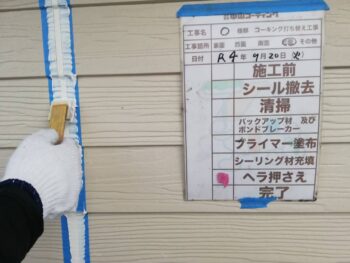 工事名 O 様邸 コーキング打ち替え工事
工事箇所 東面 西面 南面 北面 その他
日付 R4年9月20日(火)
施工前
シール撤去
清掃
バックアップ材 及び
ボンドブレーカー
プライマー塗布
シーリング材充填
ヘラ押さえ
完了